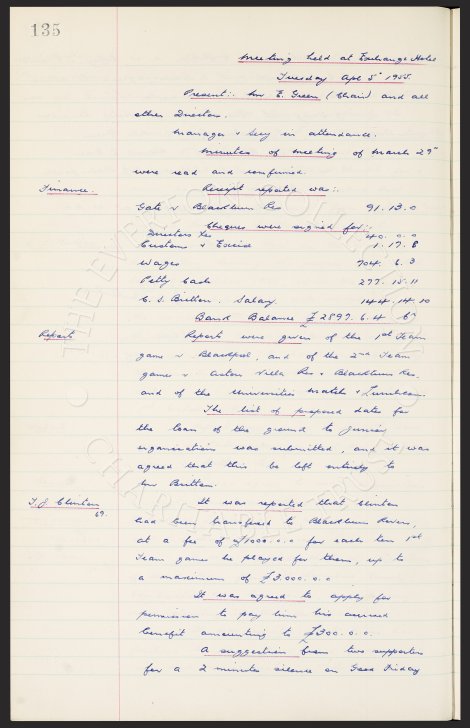 135
Meeting held at Exchange Hotel
Tuesday Apl 5" 1955.
Present:- Mr E. Green (Chair) and all
other Directors.
Manager & Secy in attendance.
Minutes of meeting of March 29"
were read and confirmed.
Finance. Receipt reported was:-
Gate v Blackburn Res 91. 13. 0
Cheques were signed for:-
Directors 40. 0. 0
Customs & Excise 1. 17. 8
Wages 704. 6. 3
Petty Cash 277. 15. 11
C. S. Britton. Salary 144. 14. 10
Bank Balance £2897. 6. 4
Reports Reports were given of the 1st Team
game v Blackpool, and of the 2nd Team
games v Aston Villa Res & Blackburn Res
and of the Universities match &
The list of proposed dates for
the loan of the ground to Junior
organisations was submitted, and it was
agreed that this be left entirely to
Mr Britton.
T. J. Clinton It was reported that Clinton
69. had been transferred to Blackburn Rovers,
at a fee of £1000.0.0 for each ten 1st
Team games he played for them, up to
a maximum of £3.000.0.0.
It was agreed to apply for
permission to pay him his accrued
benefit amounting to £300.0.0.
A suggestion from two supporters
for a 2 minutes silence on Good Friday
THE EVERTON COLLECTION
CHARITABLE TRUST